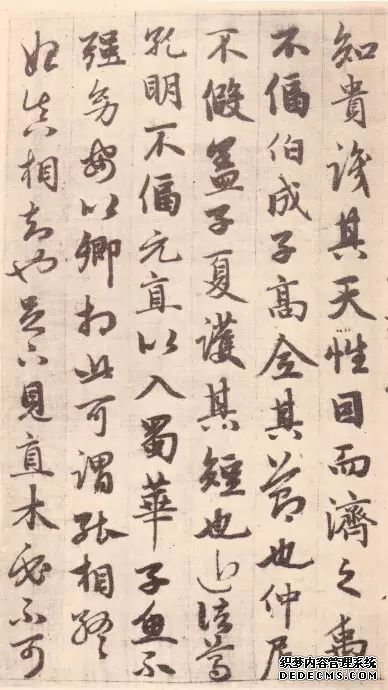 知貴識其天性因而濟之禹
不偪伯成子高全其節也仲尼
不假盖子夏護其短也近諸葛
孔明不偪元直以入蜀華子魚不
強幼安以卿相此可謂能相終
始真相知也足下見直木必不可
织梦内容管理系统
DEDECMS.COM